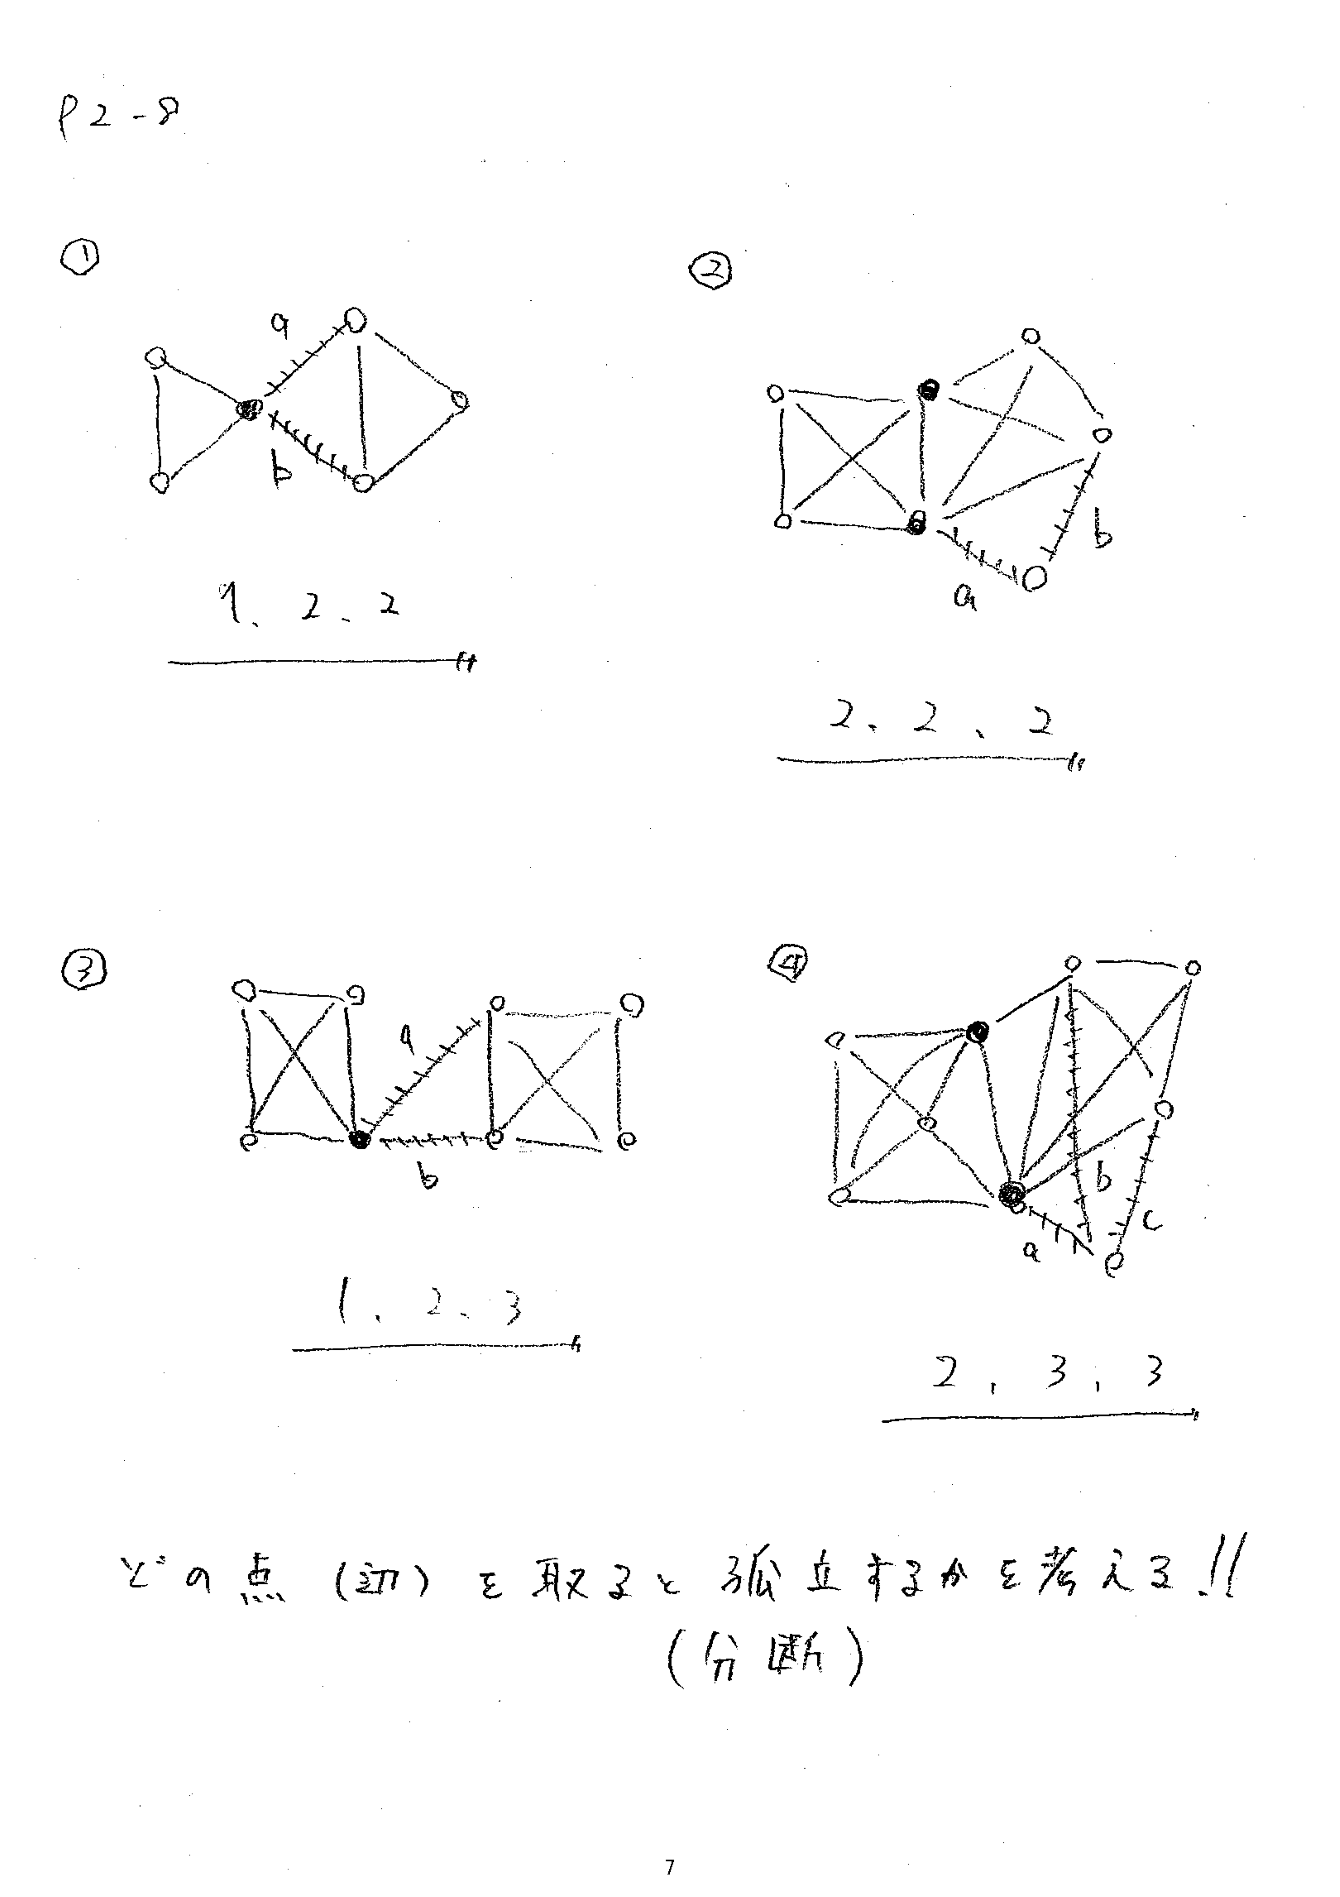 P2-8
①
a
b
1、2、2
②
b
a
2、2、2
③
a
b
1、2、3
④
b
c
a
2、3、3
どの点(辺)を取ると孤立するかを考える!!
(分断)
7